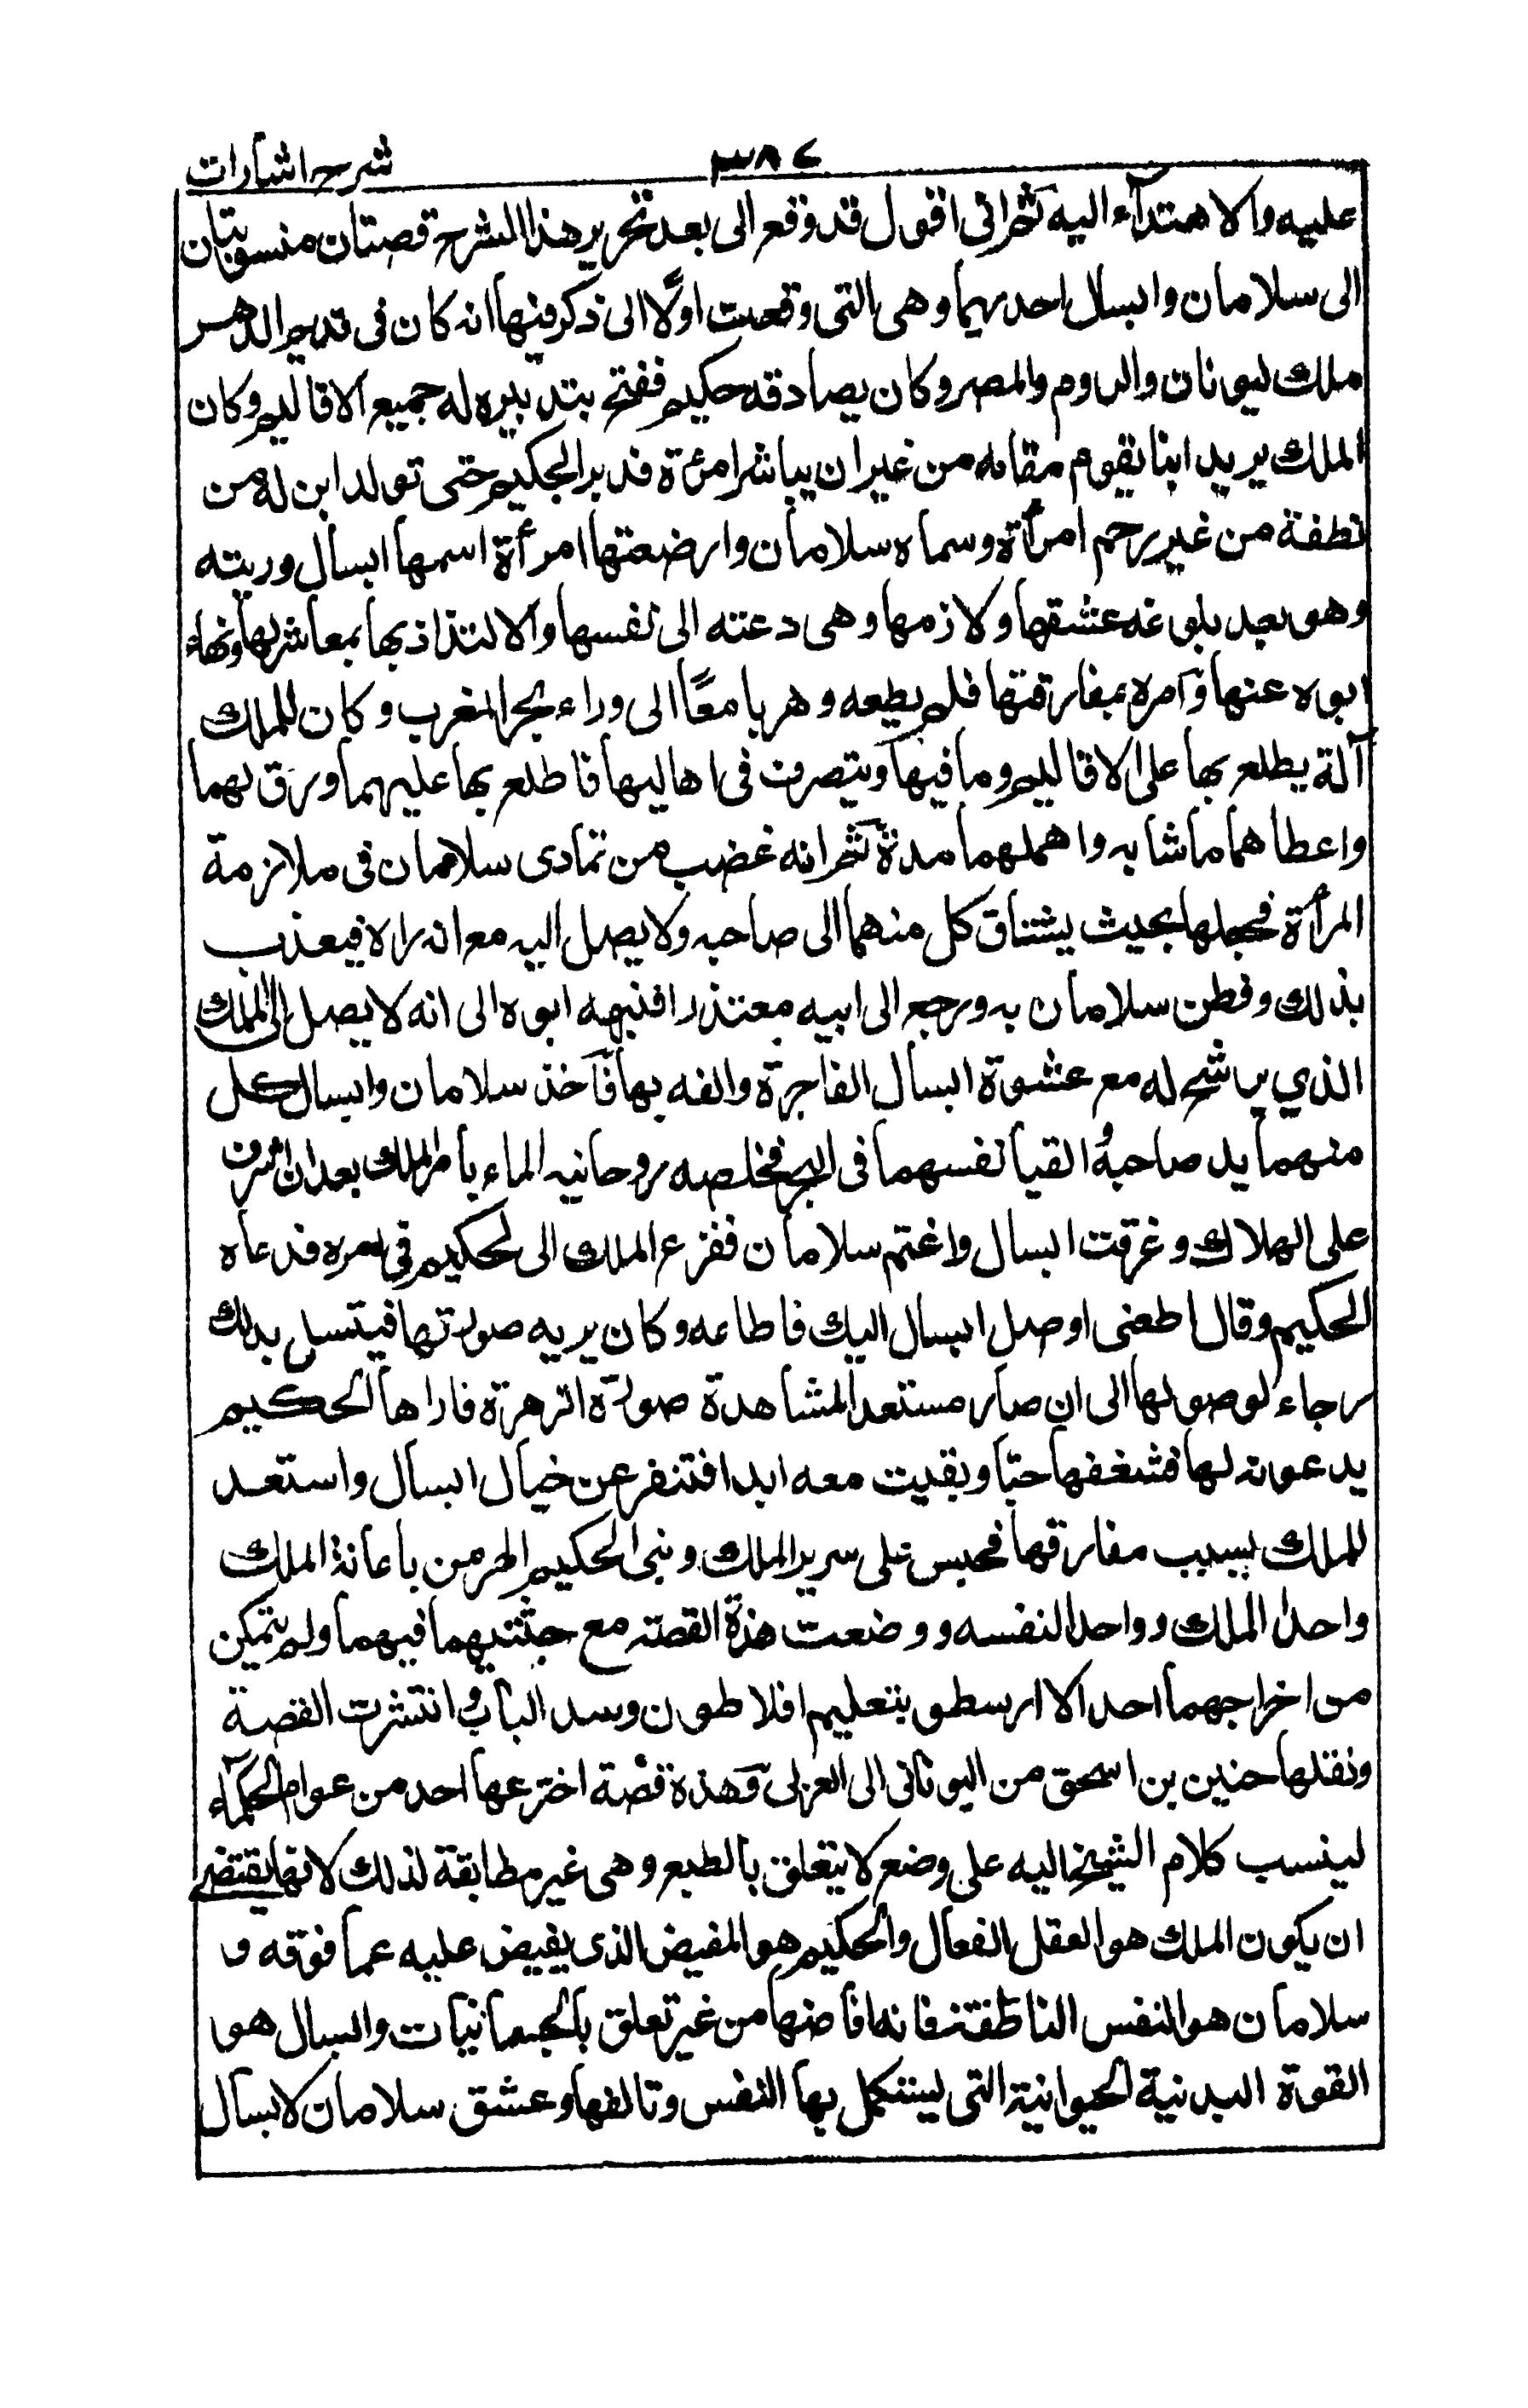 ٣٨٤ شرح اشارات
عليه والاهتدآء اليه ثم انى اقول قد وقع الى بعد تحرير هذا الشرح قصتان منسوبتان
الى سلامان وابسال احديهما وهى التى وقعت اولًا الى ذكر فيها انه كان فى قديم الدهر
ملك ليونان والروم والمصر وكان يصادقه حكيم ففتح بتدبيره له جميع الاقاليم وكان
الملك يريد ابنا يقوم مقامه من غير ان يباشر امرءة فدبر الحكيم حتى تولد ابن له من
نطفة من غير رحم امرأة وسماه سلامان وارضعتها امرأة اسمها ابسال وربته
وهو بعد بلوغه عشقها ولازمها وهى دعته الى نفسها والالتذاذ بها بمعاشرتها ونهاه
ابوه عنها وآمره بمفارقتها فلم يطعه وهربا معًا الى وراء بحر المغرب وكان للملك
آلة يطلع بها على الاقاليم وما فيها ويتصرف فى اهاليها فاطلع بها عليهما ورق لهما
واعطاهما ماشا به واهملهما مدة ثم انه غضب من تمادى سلامان فى ملازمة
المرأة فجعلها بحيث يشتاق كل منهما الى صاحبه ولا يصل اليه مع انه يراه فيعذب
بذلك وفطن سلامان به ورجع الى ابيه معتذرا فنبهه ابوه الى انه لا يصل الى الملك
الذي يرشح له مع عشقة ابسال الفاجرة والفه بها فآخذ سلامان وابسال كل
منهما يد صاحبهُ القيا نفسهما فى البحر فخلصه روحانيه الماء بامر الملك بعد ان اشرف
على الهلاك وغرقت ابسال واغتم سلامان ففزع الملك الى الحكيم فى امره فدعاه
الحكيم وقال اطعنى اوصل ابسال اليك فاطاعه وكان يريه صورتها فيتسلى بذلك
رجاء لوصولها الى ان صار مستعدا لمشاهدة صورة الزهرة فاراها الحكيم
يدعونه لها فشغفها حبّا وبقيت معه ابدا فتنفر عن خيال ابسال واستعد
للملك بسبب مفارقها فحبس على سرير الملك وبنى الحكيم الهرمين باعانة الملك
واحدا الملك وواحد النفسه ووضعت هذه القصته مع جثتيهما فيهما ولم يتمكن
من اخراجهما احد الا ارسطو بتعليم افلاطون وسد الباب وانتشرت القصة
ونقلها حنين بن اسحق من اليونانى الى العربى وهذه قصّة اخترعها احد من عوام الحكمآء
لينسب كلام الشيخ اليه على وضع لا يتعلق بالطبع وهى غير مطابقة لذلك لانها يقتضى
ان يكون الملك هو العقل الفعال والحكيم هو المفيض الذى يفيض عليه عما فوقه و
سلامان هو النفس الناطقته فانه افاضها من غير تعلق بالجسمانيات وابسال هو
القوة البدنية الحيوانية التى ليستكمل بها النفس وتالفها وعشق سلامان لابسال